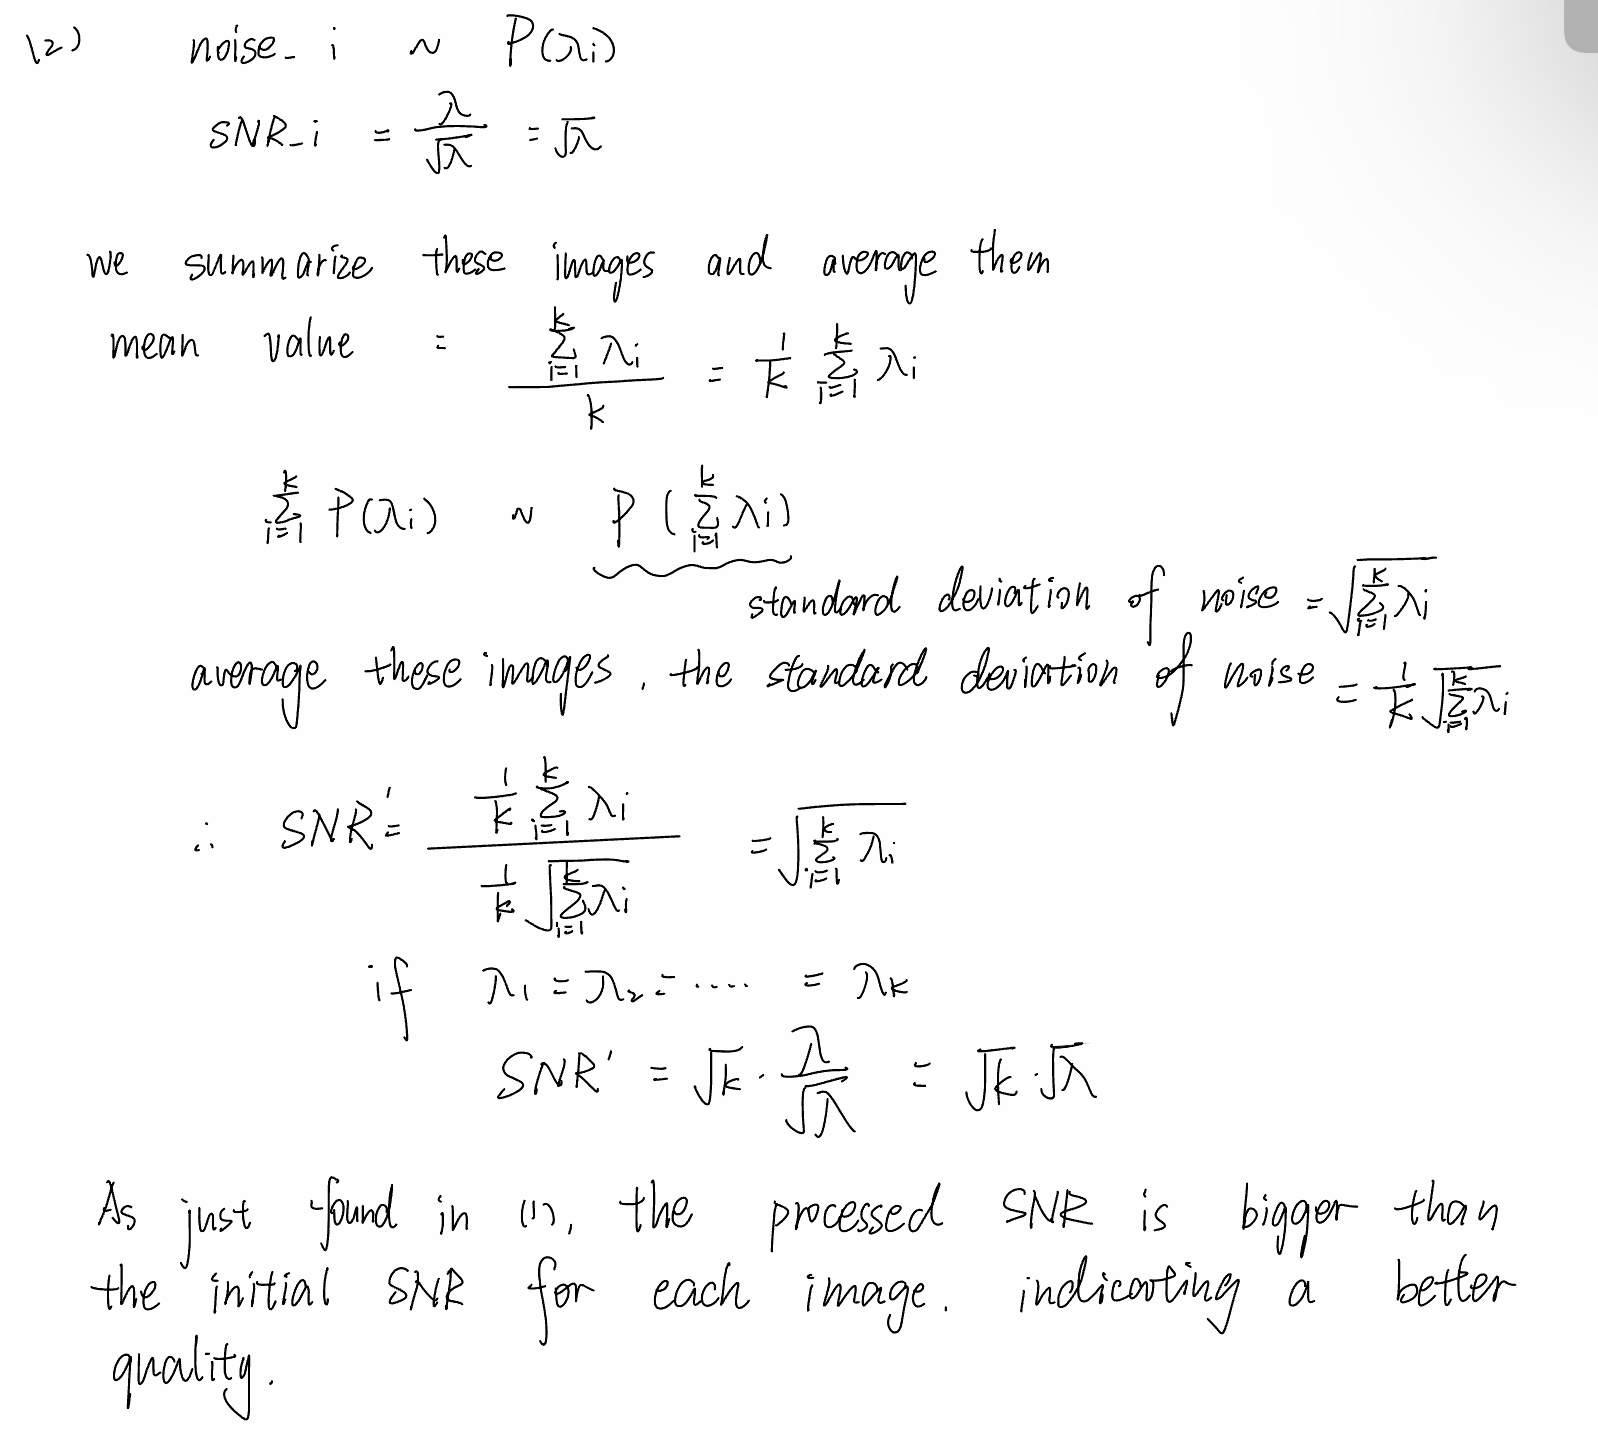 (2) noise_i ~ P(λi)
SNR_i = λ/√λ = √λ
we summarize these images and average them
mean value = (∑_{i=1}^{k} λi)/k = 1/k ∑_{i=1}^{k} λi
∑_{i=1}^{k} P(λi) ~ P(∑_{i=1}^{k} λi)
standard deviation of noise = √(∑_{i=1}^{k} λi)
average these images, the standard deviation of noise = 1/k √(∑_{i=1}^{k} λi)
∴ SNR' = (1/k ∑_{i=1}^{k} λi)/(1/k √(∑_{i=1}^{k} λi)) = √(∑_{i=1}^{k} λi)
if λ1 = λ2 = .... = λk
SNR' = √k · λ/√λ = √k · √λ
As just found in (1), the processed SNR is bigger than
the initial SNR for each image. indicating a better
quality.